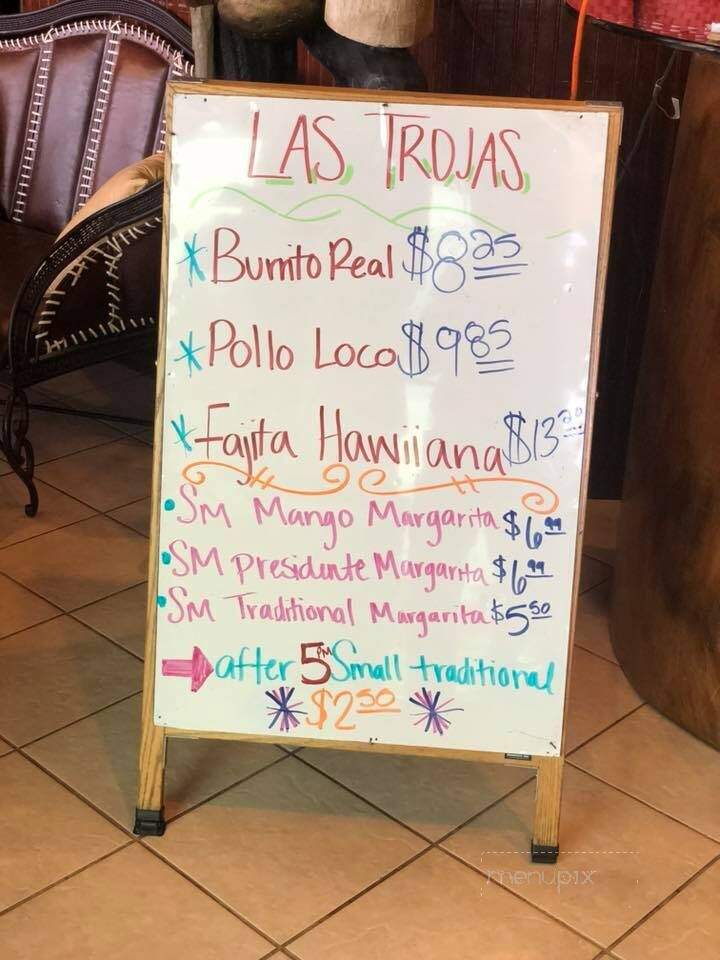 LAS TROJAS
* Burrito Real $8.25
* Pollo Loco $9.85
* Fajita Hawiiana $13.20
• SM Mango Margarita $6.99
• SM Presidente Margarita $6.99
• SM Traditional Margarita $5.50
after 5PM Small traditional
* $2.50 *
menupix